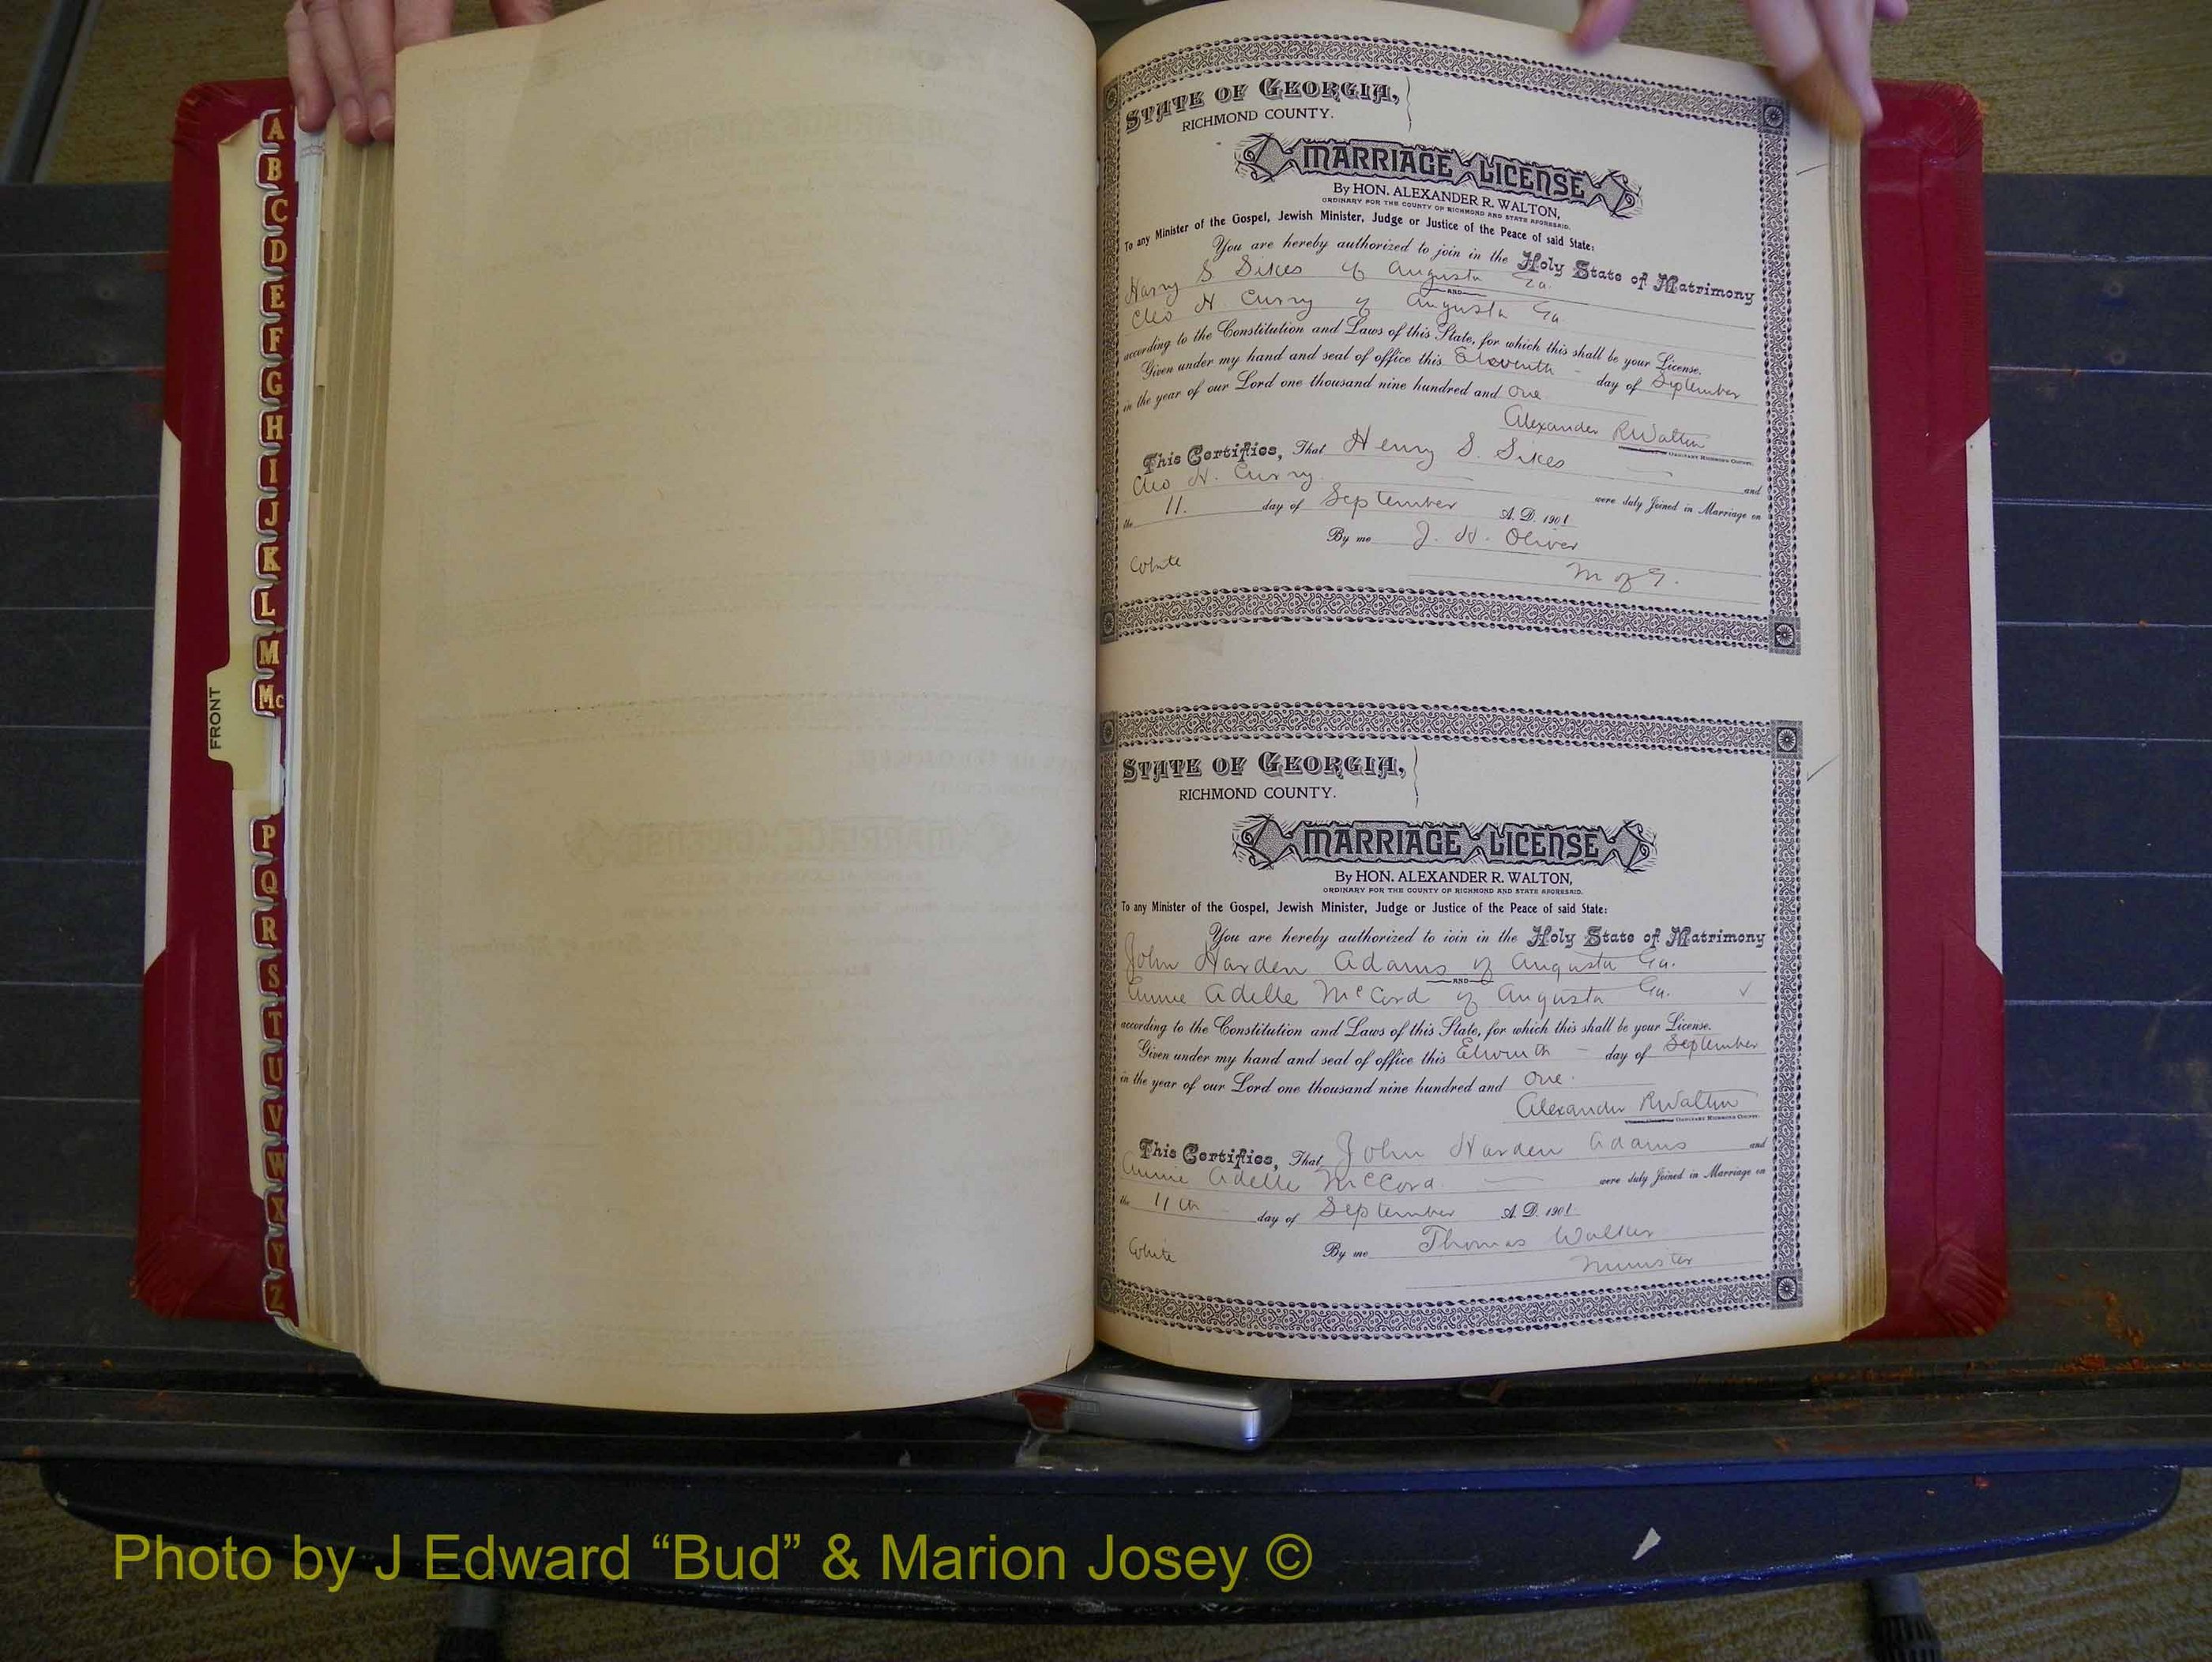 A
B
C
D
E
F
G
H
I
J
K
L
M
Mc
FRONT
P
Q
R
S
T
U
V
W
X
Y
Z
STATE OF GEORGIA,
RICHMOND COUNTY.
MARRIAGE LICENSE
By HON. ALEXANDER R. WALTON,
ORDINARY FOR THE COUNTY OF RICHMOND AND STATE AFORESAID.
To any Minister of the Gospel, Jewish Minister, Judge or Justice of the Peace of said State:
You are hereby authorized to join in the Holy State of Matrimony
Harry S Sikes of Augusta Ga.
AND
Cleo H. Curry of Augusta Ga.
according to the Constitution and Laws of this State, for which this shall be your License.
Given under my hand and seal of office this Eleventh - day of September
in the year of our Lord one thousand nine hundred and one
Alexander R Walton
ORDINARY RICHMOND COUNTY.
This Certifies, That Henry S. Sikes and
Cleo H. Curry were duly Joined in Marriage on
the 11. day of September A. D. 1901
By me J. H. Oliver
White M of G.
STATE OF GEORGIA,
RICHMOND COUNTY.
MARRIAGE LICENSE
By HON. ALEXANDER R. WALTON,
ORDINARY FOR THE COUNTY OF RICHMOND AND STATE AFORESAID.
To any Minister of the Gospel, Jewish Minister, Judge or Justice of the Peace of said State:
You are hereby authorized to join in the Holy State of Matrimony
John Harden Adams of Augusta Ga.
AND
Annie Adelle McCord of Augusta Ga.
according to the Constitution and Laws of this State, for which this shall be your License.
Given under my hand and seal of office this Eleventh - day of September
in the year of our Lord one thousand nine hundred and one.
Alexander R Walton
ORDINARY RICHMOND COUNTY.
This Certifies, That John Harden Adams and
Annie Adelle McCord were duly Joined in Marriage on
the 11th day of September A. D. 1901.
White By me Thomas Walker
Minister
Photo by J Edward “Bud” & Marion Josey ©